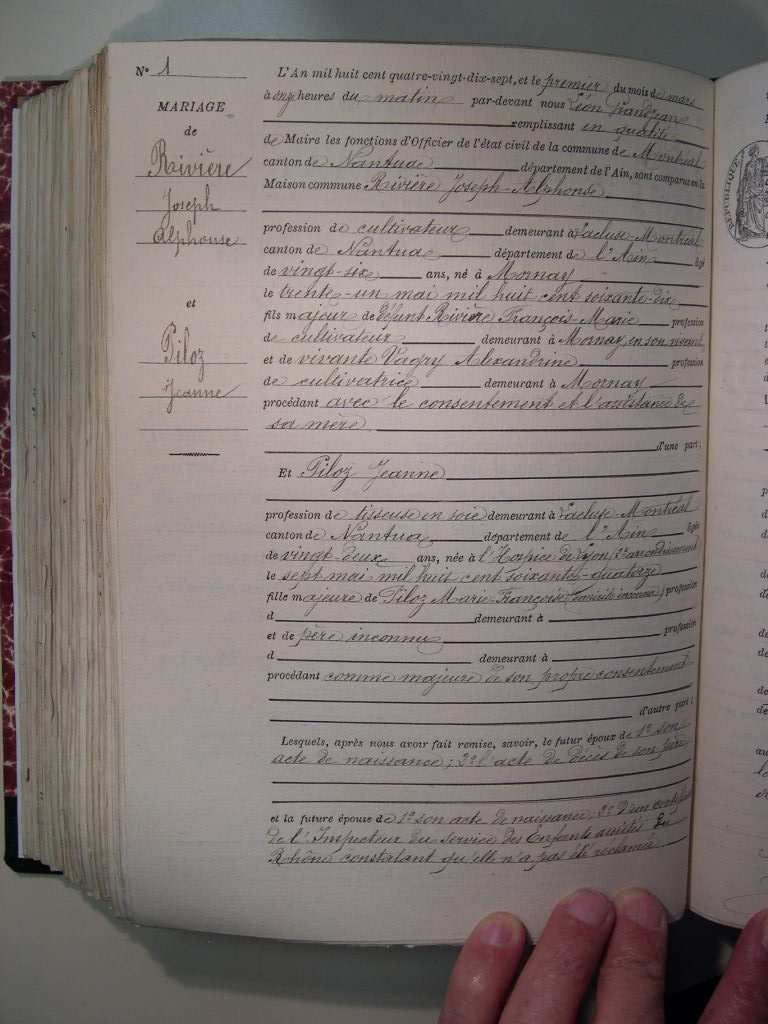 N° 1
MARIAGE
de
Rivière
Joseph
Alphonse
et
Piloz
Jeanne
L'An mil huit cent quatre-vingt-dix-sept, et le premier du mois de mars
à cinq heures du matin par-devant nous Léon Grandjean
remplissant en qualité
de Maire les fonctions d'Officier de l'état civil de la commune de Montréal
canton de Nantua département de l'Ain, sont comparus en la
Maison commune Rivière Joseph-Alphonse
profession de cultivateur demeurant à Lacluse-Montréal
canton de Nantua département de l'Ain âgé
de vingt-six ans, né à Mornay
le trente-un mai mil huit cent soixante-dix
fils majeur de défunt Rivière François-Marie profession
de cultivateur demeurant à Mornay en son vivant
et de vivante Vagry Alexandrine profession
de cultivatrice demeurant à Mornay
procédant avec le consentement et l'assistance de
sa mère
d'une part;
Et Piloz Jeanne
profession de tisseuse en soie demeurant à Lacluse-Montréal
canton de Nantua département de l'Ain âgée
de vingt-deux ans, née à l'Hospice de Lyon, 2e arrondissement
le sept mai mil huit cent soixante-quatorze
fille majeure de Piloz Marie-Françoise (domicile inconnu) profession
d demeurant à
et de père inconnu profession
d demeurant à
procédant comme majeure de son propre consentement
d'autre part;
Lesquels, après nous avoir fait remise, savoir, le futur époux de 1° son
acte de naissance; 2° l'acte de décès de son père
et la future épouse de 1° son acte de naissance; 2° d'un certificat
de l'Inspecteur du service des Enfants assistés du
Rhône constatant qu'elle n'a pas été réclamée.
RÉPUBLIQUE